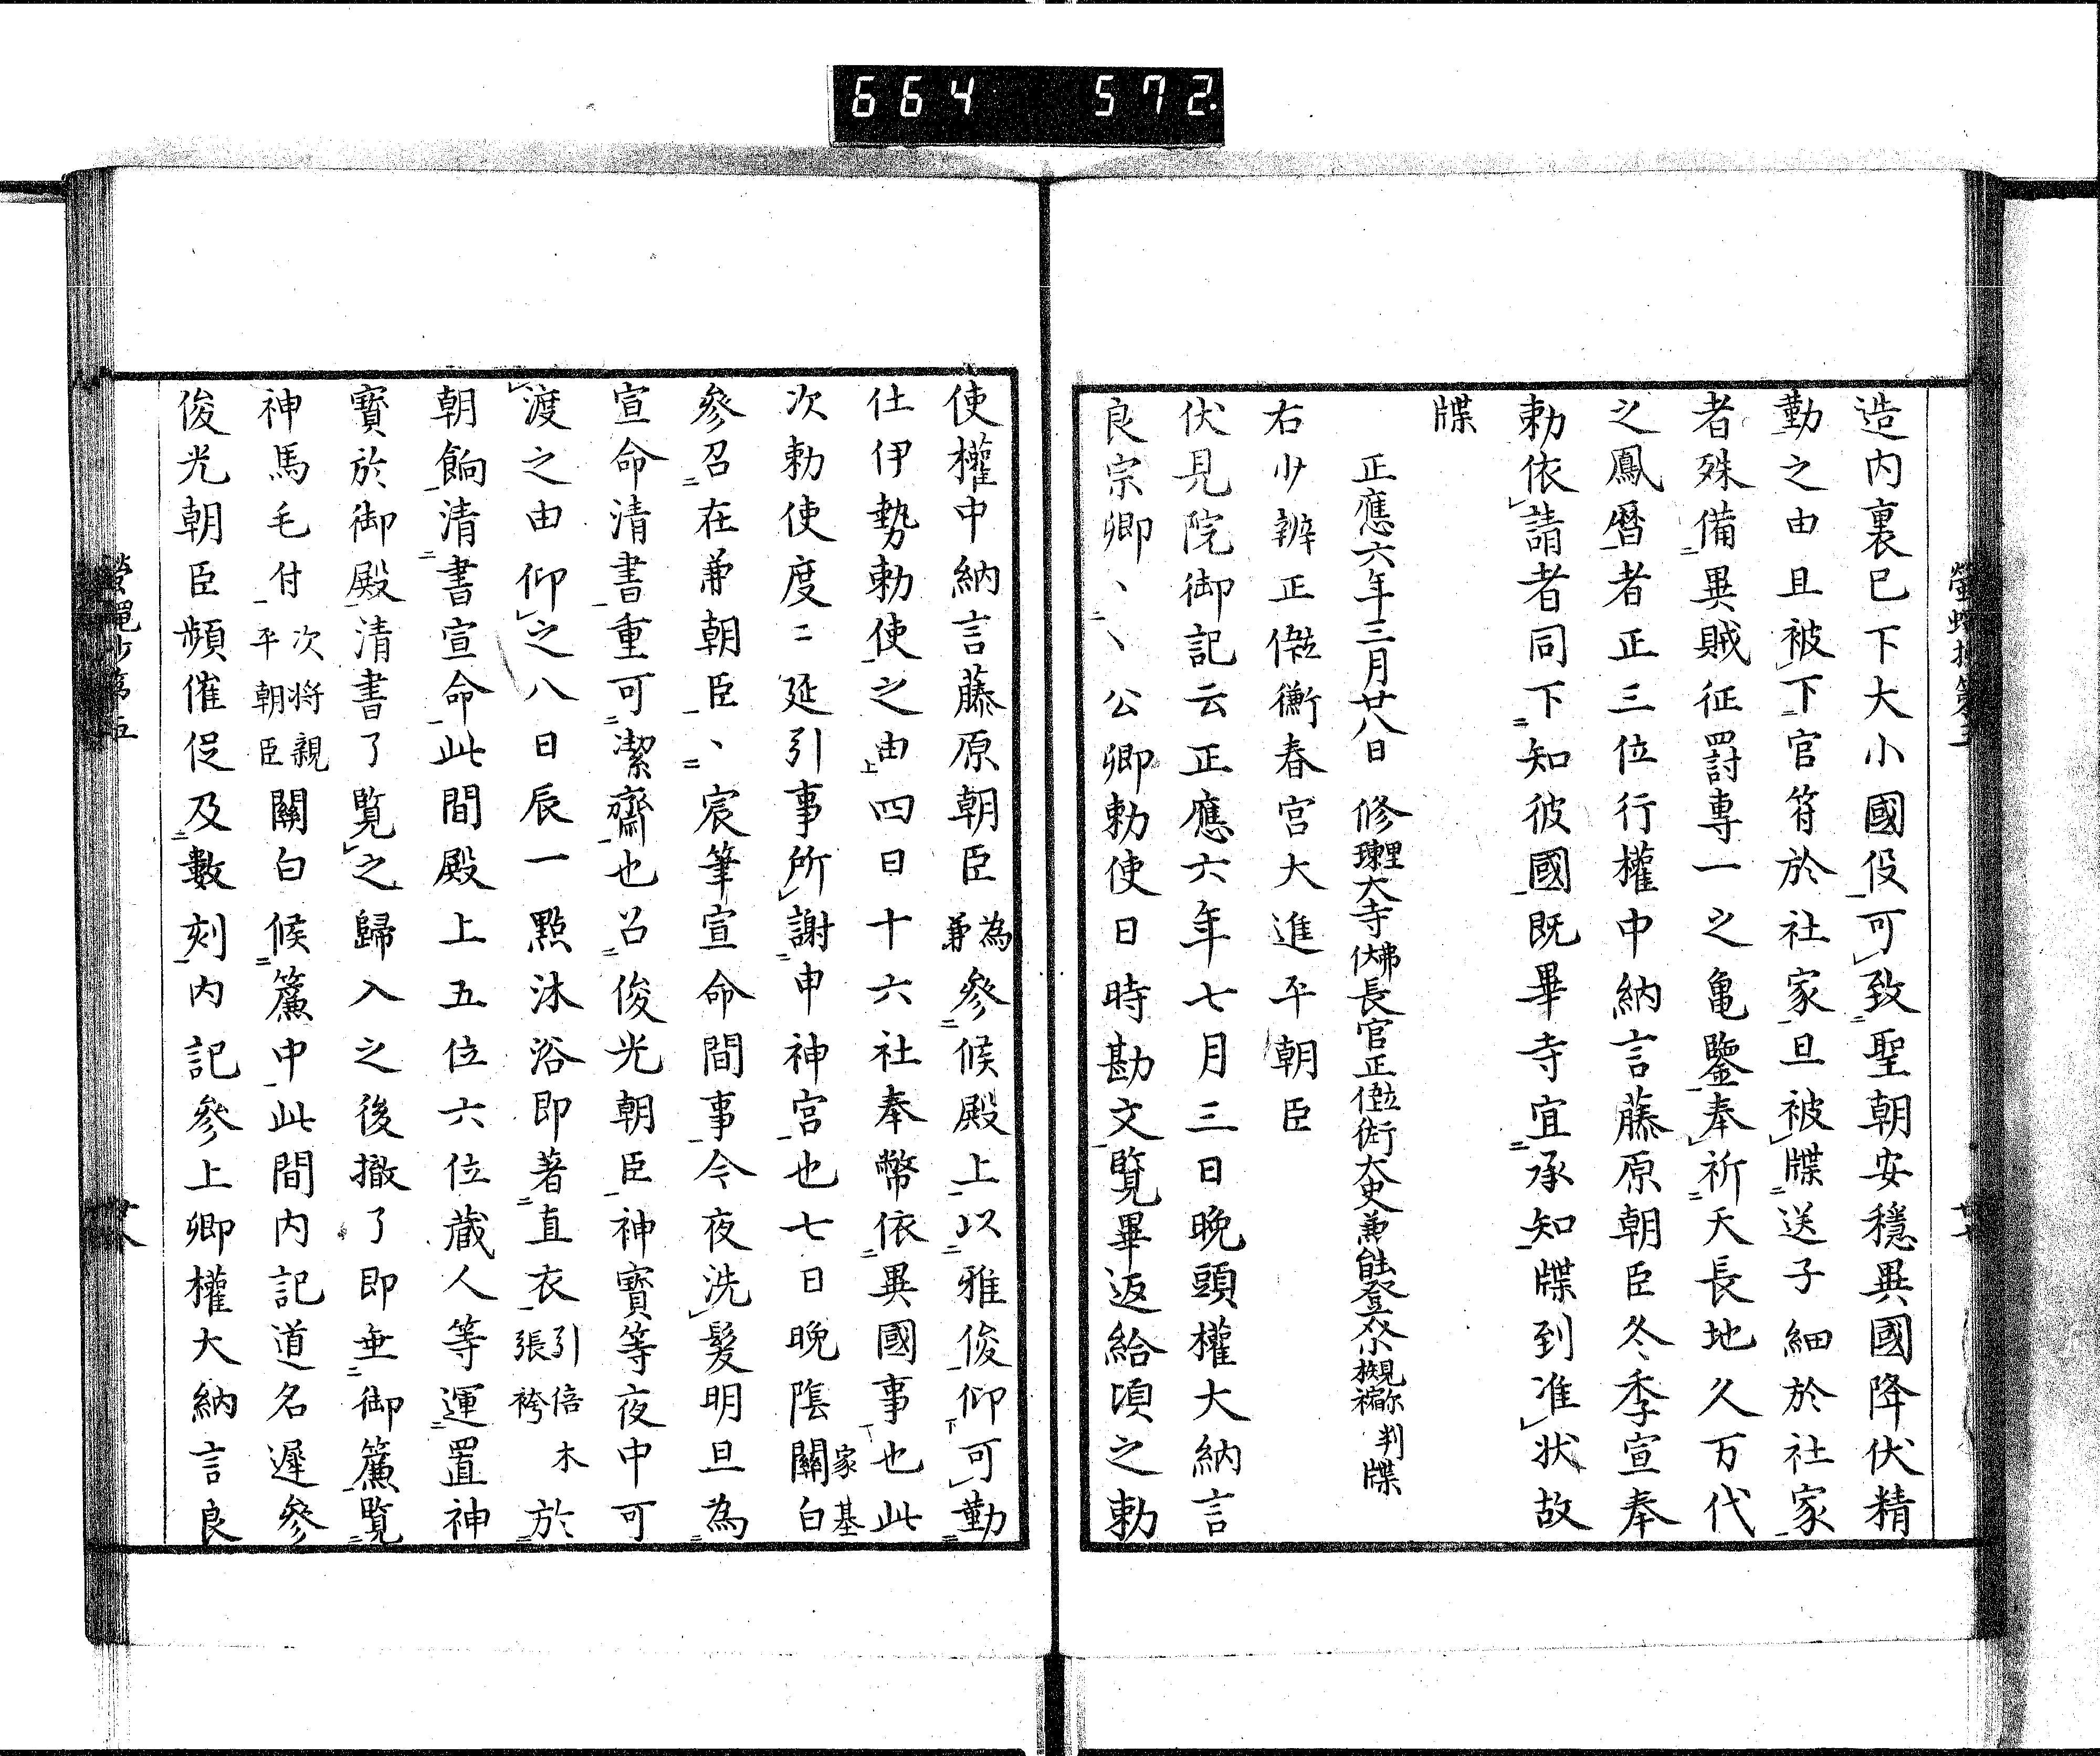 664 572.
造内裏已下大小國役可致聖朝安穩異國降伏精
勤之由且被下官符於社家且被牒送子細於社家
者殊備異賊征罸專一之亀鑒奉祈天長地久万代
之鳳暦者正三位行權中納言藤原朝臣冬季宣奉
勅依請者同下知彼國既畢寺宜承知牒到准状故
牒
正應六年三月廿八日 修理東大寺大佛長官正五位下行大史兼能登介 判牒
右少辨正五位下衡春宮大進平朝臣
伏見院御記云正應六年七月三日晩頭權大納言
良宗卿、、公卿勅使日時勘文覧畢返給頃之勅
使權中納言藤原朝臣為兼參候殿上以雅俊仰可勤
仕伊勢勅使之由四日十六社奉幣依異國事也此
次勅使度々延引事所謝申神宮也七日晩陰關白家基
參召在兼朝臣、宸筆宣命間事今夜洗髪明旦為
宣命清書重可潔齋也召俊光朝臣神寳等夜中可
渡之由仰之八日辰一點沐浴即著直衣引倍木張袴於
朝餉清書宣命此間殿上五位六位蔵人等運置神
寳於御殿清書了覧之歸入之後撤了即垂御簾覧
神馬毛付次將親平朝臣關白候簾中此間内記道名遅參
俊光朝臣頻催促及數刻内記參上卿權大納言良
螢蠅抄第五
廿八